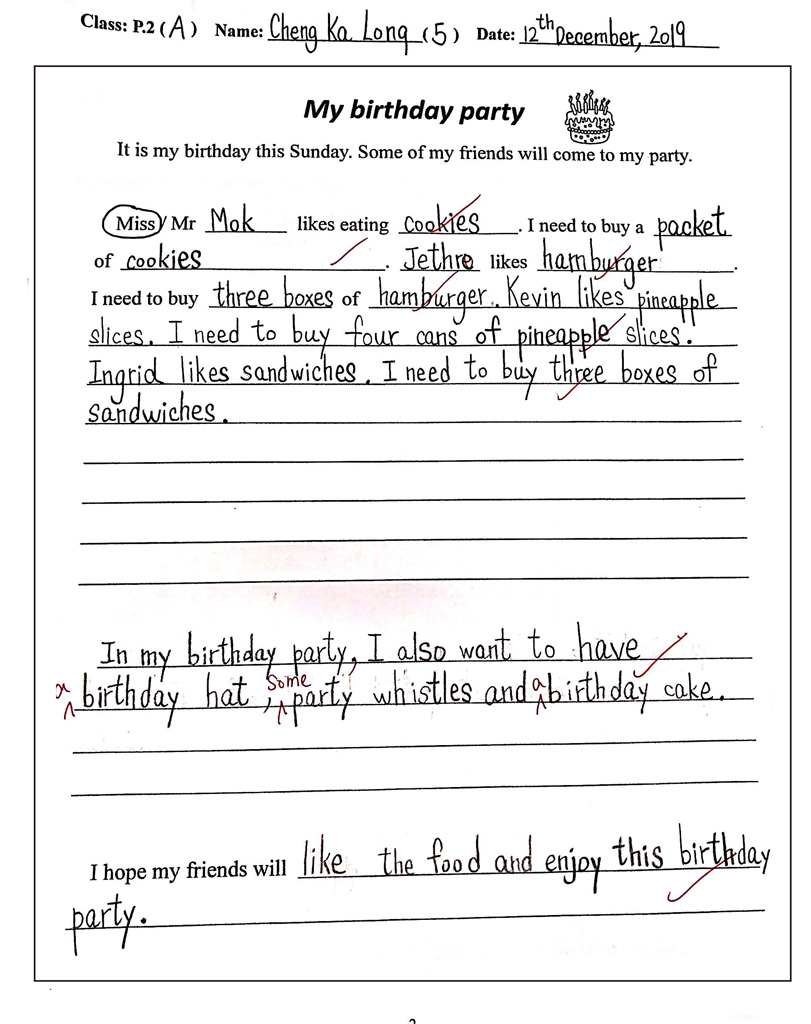 Class: P.2 (A) Name: Cheng Ka Long (5) Date: 12th December, 2019
My birthday party
It is my birthday this Sunday. Some of my friends will come to my party.
Miss / Mr Mok likes eating cookies. I need to buy a packet
of cookies. Jethre likes hamburger.
I need to buy three boxes of hamburger. Kevin likes pineapple
slices. I need to buy four cans of pineapple slices.
Ingrid likes sandwiches. I need to buy three boxes of
sandwiches.
In my birthday party, I also want to have
a birthday hat, some party whistles and a birthday cake.
I hope my friends will like the food and enjoy this birthday
party.